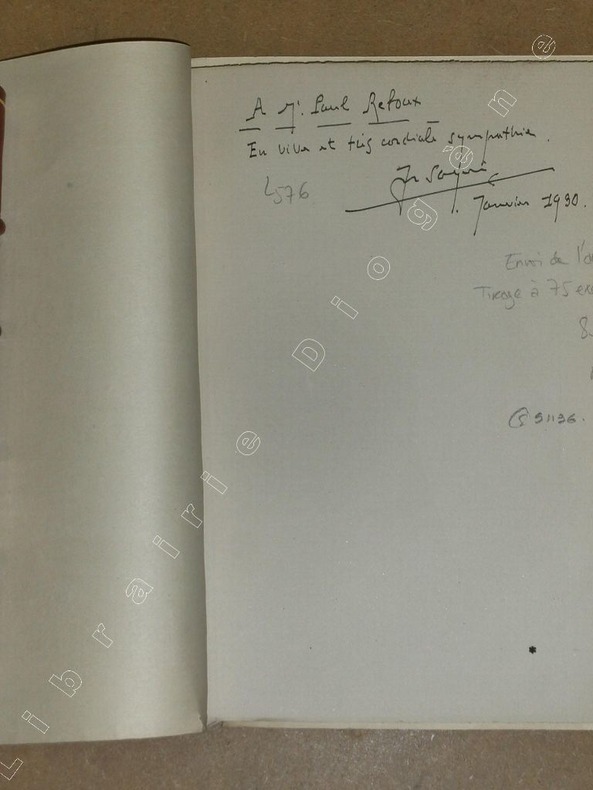 A Mr. Paul Refoux
En vive et très cordiale sympathie.
Janvier 1930.
4576
Envoi de l'a
Tirage à 75 ex
Librairie Diogène